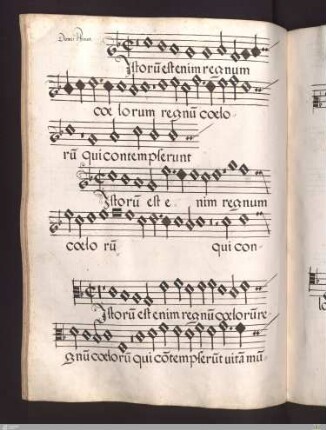 Istorū est enim regnum
cœ lorum regnū cœlo-
rū qui contempserunt
Istorū est e- nim regnum
cœlo rū qui con-
Istorū est enim regnū cœlorū re-
gnū cœlorū qui cōtempserūt uitā mū-